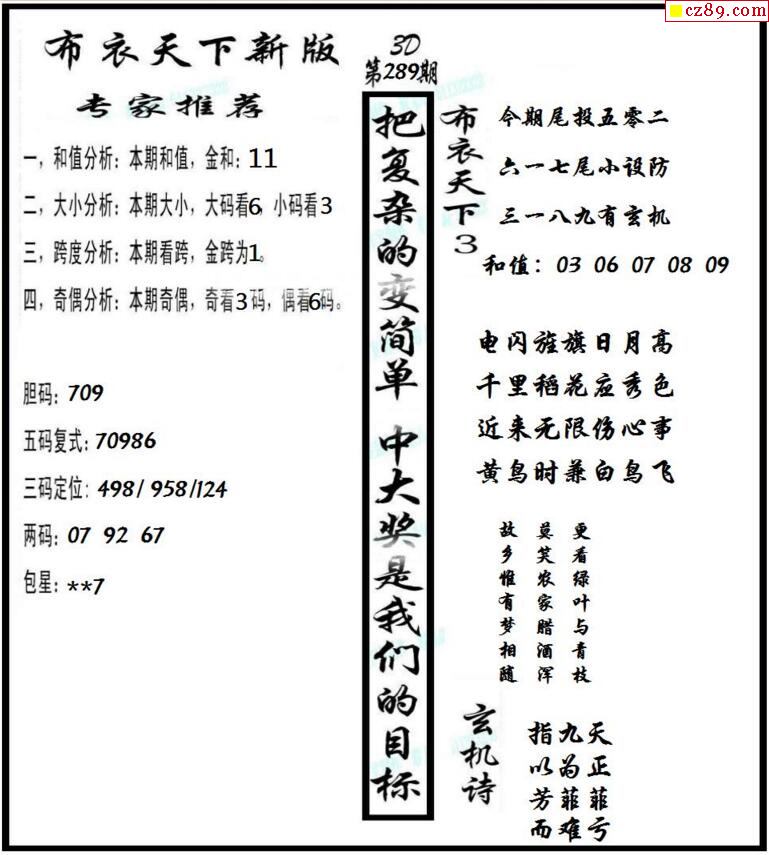 cz89.com
布衣天下新版
3D
第289期
专家推荐
一，和值分析：本期和值，金和：11
二，大小分析：本期大小，大码看6，小码看3
三，跨度分析：本期看跨，金跨为1。
四，奇偶分析：本期奇偶，奇看3码，偶看6码。
胆码：709
五码复式：70986
三码定位：498/ 958/124
两码：07 92 67
包星：**7
把复杂的变简单 中大奖是我们的目标
布衣天下3
今期尾投五零二
六一七尾小设防
三一八九有玄机
和值：03 06 07 08 09
电闪旌旗日月高
千里稻花应秀色
近来无限伤心事
黄鸟时兼白鸟飞
更看绿叶与青枝
莫笑农家腊酒浑
故乡惟有梦相随
玄机诗
指九天
以为正
芳菲菲
而难亏